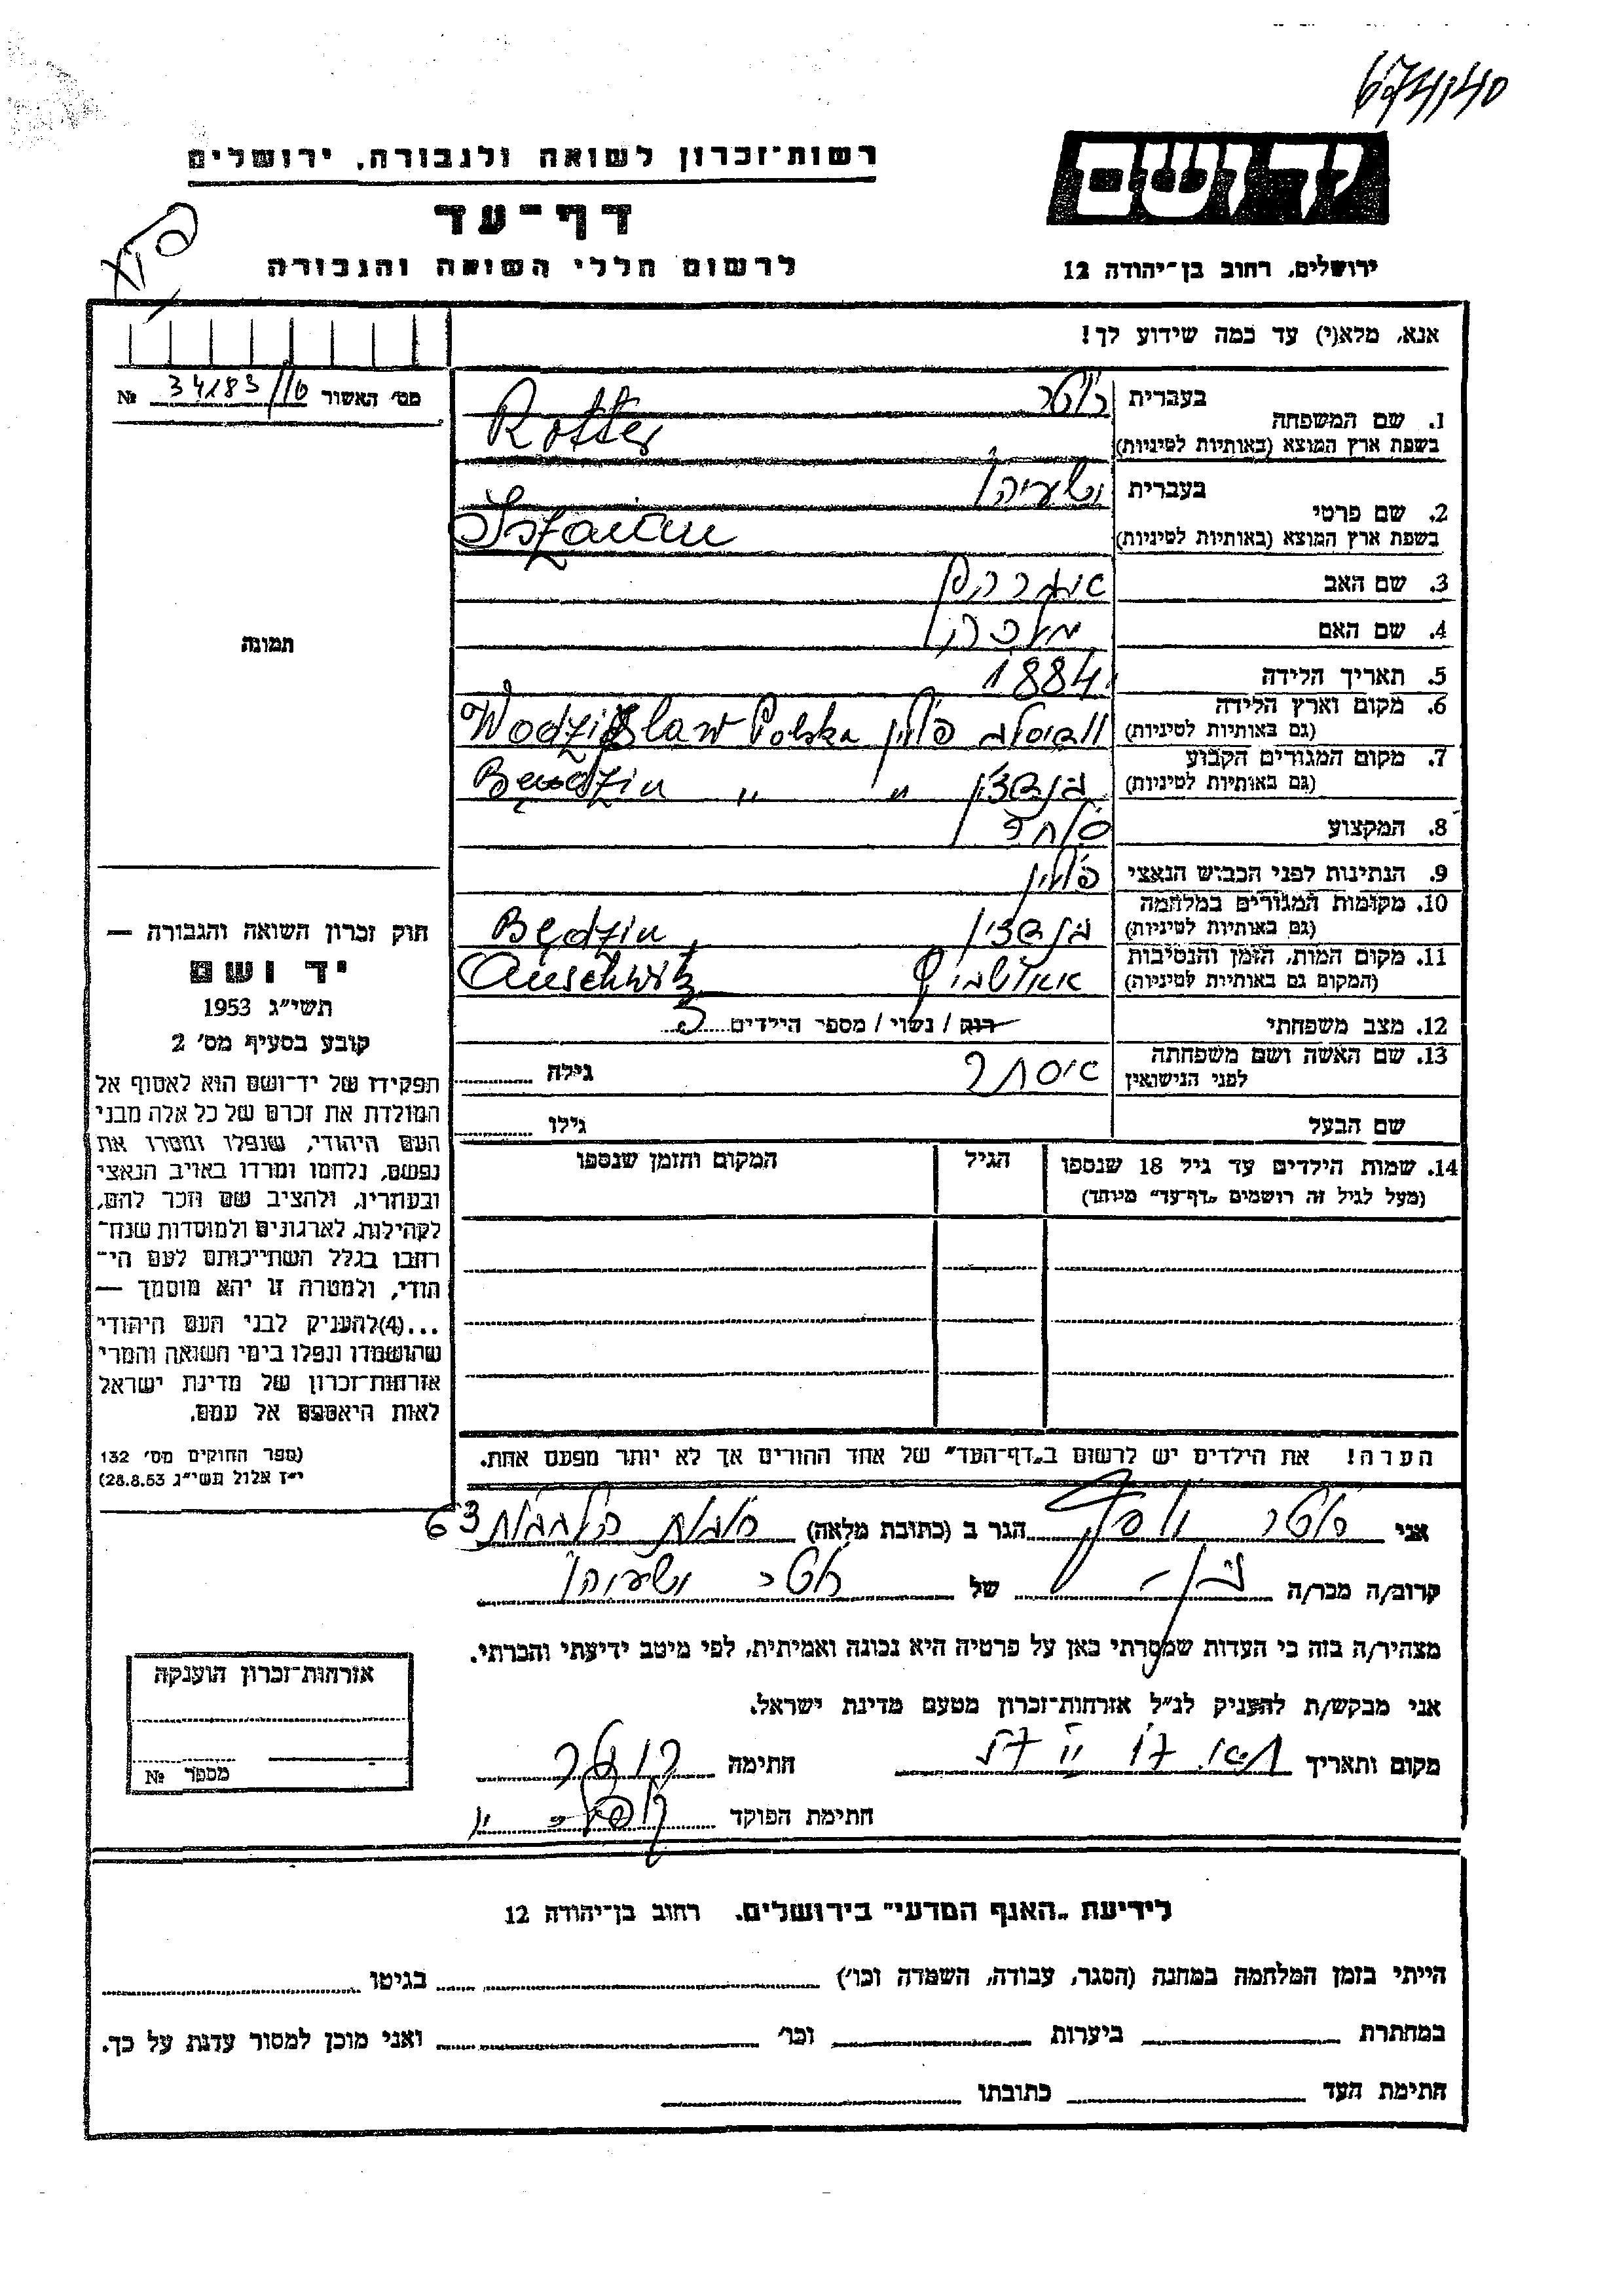 רשות־זכרון לשואה ולגבורה, ירושלים
יד ושם
דף־עד
לרשום חללי השואה והגבורה
ירושלים, רחוב בן־יהודה 12
אנא, מלא(י) עד כמה שידוע לך!
מס' האשור 34183/10 №
בעברית רוטר
1. שם המשפחה
בשפת ארץ המוצא (באותיות לטיניות) Rotter
בעברית ישעיהו
2. שם פרטי
בשפת ארץ המוצא (באותיות לטיניות)
3. שם האב אברהם
4. שם האם מלכה
5. תאריך הלידה 1884
6. מקום וארץ הלידה
(גם באותיות לטיניות) פולין Wodzisław Polska
7. מקום המגורים הקבוע
(גם באותיות לטיניות) בנדצין " " Bendzin
8. המקצוע סוחר
9. הנתינות לפני הכבוש הנאצי פולין
10. מקומות המגורים במלחמה
(גם באותיות לטיניות) בנדצין Będzin
11. מקום המות, הזמן והנסיבות
(המקום גם באותיות לטיניות) Auschwitz
12. מצב משפחתי רווק / נשוי / מספר הילדים
13. שם האשה ושם משפחתה
לפני הנישואין אסתר גילה
שם הבעל גילו
14. שמות הילדים עד גיל 18 שנספו
(מעל לגיל זה רושמים „דף־עד" מיוחד)
הגיל
המקום והזמן שנספו
הערה! את הילדים יש לרשום ב„דף־העד" של אחד ההורים אך לא יותר מפעם אחת.
תמונה
חוק זכרון השואה והגבורה —
יד ושם
תשי"ג 1953
קובע בסעיף מס' 2
תפקידו של יד־ושם הוא לאסוף אל
המולדת את זכרם של כל אלה מבני
העם היהודי, שנפלו ומסרו את
נפשם, נלחמו ומרדו באויב הנאצי
ובעוזריו, ולהציב שם וזכר להם,
לקהילות, לארגונים ולמוסדות שנח־
רבו בגלל השתייכותם לעם הי־
הודי, ולמטרה זו יהא מוסמך —
...(4)להעניק לבני העם היהודי
שהושמדו ונפלו בימי השואה והמרי
אזרחות־זכרון של מדינת ישראל
לאות היאספם אל עמם.
(ספר החוקים מס' 132
י"ז אלול תשי"ג 28.8.53)
אני רוטר יוסף הגר ב (כתובת מלאה) 63
קרוב/ה מכר/ה בן של רוטר ישעיהו
מצהיר/ה בזה כי העדות שמסרתי כאן על פרטיה היא נכונה ואמיתית, לפי מיטב ידיעתי והכרתי.
אני מבקש/ת להעניק לנ"ל אזרחות־זכרון מטעם מדינת ישראל.
מקום ותאריך חתימה רוטר
חתימת הפוקד
אזרחות־זכרון הוענקה
מספר №
לידיעת „האגף המדעי" בירושלים. רחוב בן־יהודה 12
הייתי בזמן המלחמה במחנה (הסגר, עבודה, השמדה וכו') בגיטו
במחתרת ביערות וכו' ואני מוכן למסור עדות על כך.
חתימת העד כתובתו